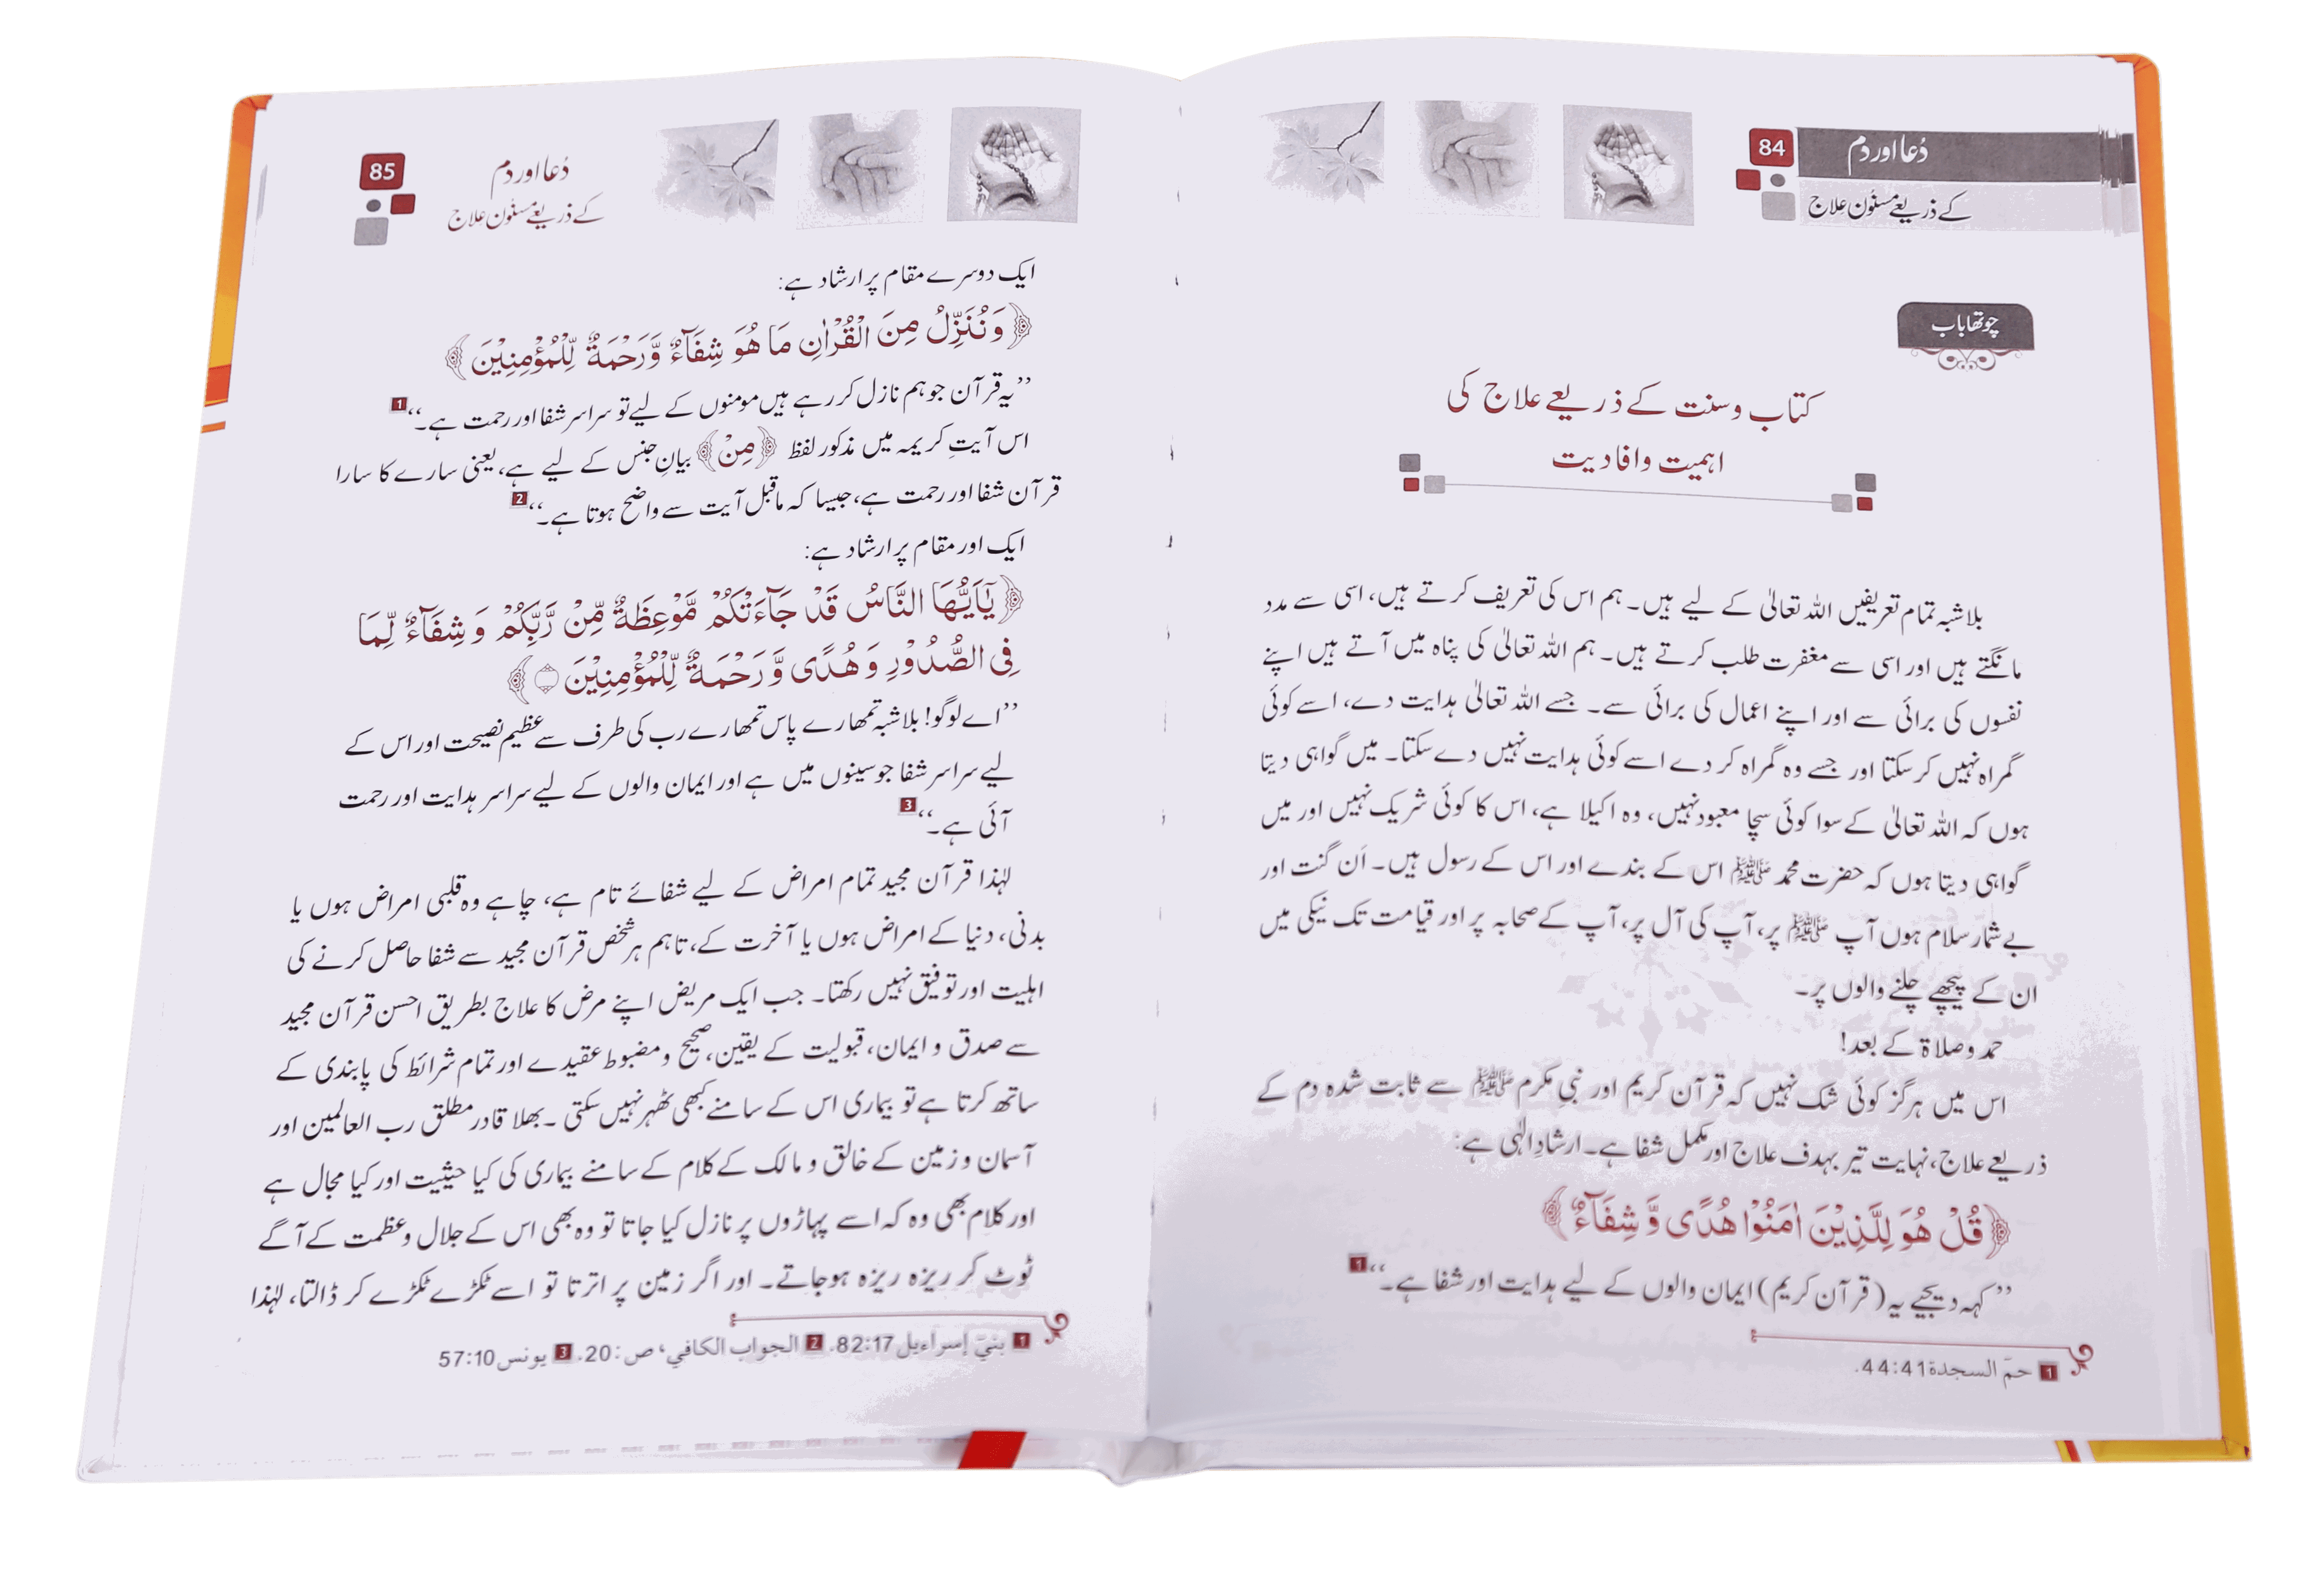 84
دُعا اور دَم
کے ذریعے مسنُون عِلاج
چوتھا باب
کتاب و سنت کے ذریعے علاج کی
اہمیت و افادیت
بلاشبہ تمام تعریفیں اللہ تعالیٰ کے لیے ہیں۔ ہم اس کی تعریف کرتے ہیں، اسی سے مدد
مانگتے ہیں اور اسی سے مغفرت طلب کرتے ہیں۔ ہم اللہ تعالیٰ کی پناہ میں آتے ہیں اپنے
نفسوں کی برائی سے اور اپنے اعمال کی برائی سے۔ جسے اللہ تعالیٰ ہدایت دے، اسے کوئی
گمراہ نہیں کر سکتا اور جسے وہ گمراہ کر دے اسے کوئی ہدایت نہیں دے سکتا۔ میں گواہی دیتا
ہوں کہ اللہ تعالیٰ کے سوا کوئی سچا معبود نہیں، وہ اکیلا ہے، اس کا کوئی شریک نہیں اور میں
گواہی دیتا ہوں کہ حضرت محمد ﷺ اس کے بندے اور اس کے رسول ہیں۔ اَن گنت اور
بے شمار سلام ہوں آپ ﷺ پر، آپ کی آل پر، آپ کے صحابہ پر اور قیامت تک نیکی میں
ان کے پیچھے چلنے والوں پر۔
حمد و صلاۃ کے بعد!
اس میں ہرگز کوئی شک نہیں کہ قرآن کریم اور نبیِ مکرم ﷺ سے ثابت شدہ دم کے
ذریعے علاج، نہایت تیر بہدف علاج اور مکمل شفا ہے۔ ارشادِ الٰہی ہے:
﴿قُلْ هُوَ لِلَّذِيْنَ اٰمَنُوْا هُدًى وَّ شِفَآءٌ﴾
’’کہہ دیجیے یہ (قرآن کریم) ایمان والوں کے لیے ہدایت اور شفا ہے۔‘‘ 1
1 حمٓ السجدة 44:41.
85
دُعا اور دَم
کے ذریعے مسنُون عِلاج
ایک دوسرے مقام پر ارشاد ہے:
﴿وَنُنَزِّلُ مِنَ الْقُرْاٰنِ مَا هُوَ شِفَآءٌ وَّرَحْمَةٌ لِّلْمُؤْمِنِيْنَ﴾
’’یہ قرآن جو ہم نازل کر رہے ہیں مومنوں کے لیے تو سراسر شفا اور رحمت ہے۔‘‘ 1
اس آیتِ کریمہ میں مذکور لفظ ﴿مِنْ﴾ بیانِ جنس کے لیے ہے، یعنی سارے کا سارا
قرآن شفا اور رحمت ہے، جیسا کہ ماقبل آیت سے واضح ہوتا ہے۔‘‘ 2
ایک اور مقام پر ارشاد ہے:
﴿يٰٓاَيُّهَا النَّاسُ قَدْ جَآءَتْكُمْ مَّوْعِظَةٌ مِّنْ رَّبِّكُمْ وَ شِفَآءٌ لِّمَا
فِى الصُّدُوْرِ وَ هُدًى وَّ رَحْمَةٌ لِّلْمُؤْمِنِيْنَ ۝﴾
’’اے لوگو! بلاشبہ تمھارے پاس تمھارے رب کی طرف سے عظیم نصیحت اور اس کے
لیے سراسر شفا جو سینوں میں ہے اور ایمان والوں کے لیے سراسر ہدایت اور رحمت
آئی ہے۔‘‘ 3
لہٰذا قرآن مجید تمام امراض کے لیے شفائے تام ہے، چاہے وہ قلبی امراض ہوں یا
بدنی، دنیا کے امراض ہوں یا آخرت کے، تاہم ہر شخص قرآن مجید سے شفا حاصل کرنے کی
اہلیت اور توفیق نہیں رکھتا۔ جب ایک مریض اپنے مرض کا علاج بطریق احسن قرآن مجید
سے صدق و ایمان، قبولیت کے یقین، صحیح و مضبوط عقیدے اور تمام شرائط کی پابندی کے
ساتھ کرتا ہے تو بیماری اس کے سامنے کبھی ٹھہر نہیں سکتی۔ بھلا قادر مطلق رب العالمین اور
آسمان و زمین کے خالق و مالک کے کلام کے سامنے بیماری کی کیا حیثیت اور کیا مجال ہے
اور کلام بھی وہ کہ اسے پہاڑوں پر نازل کیا جاتا تو وہ بھی اس کے جلال و عظمت کے آگے
ٹوٹ کر ریزہ ریزہ ہوجاتے۔ اور اگر زمین پر اترتا تو اسے ٹکڑے ٹکڑے کر ڈالتا، لہٰذا
1 بنيٓ إسراءيل 82:17. 2 الجواب الكافي، ص: 20. 3 يونس 57:10